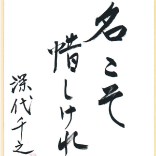 名こそ
惜しけれ
深代千之